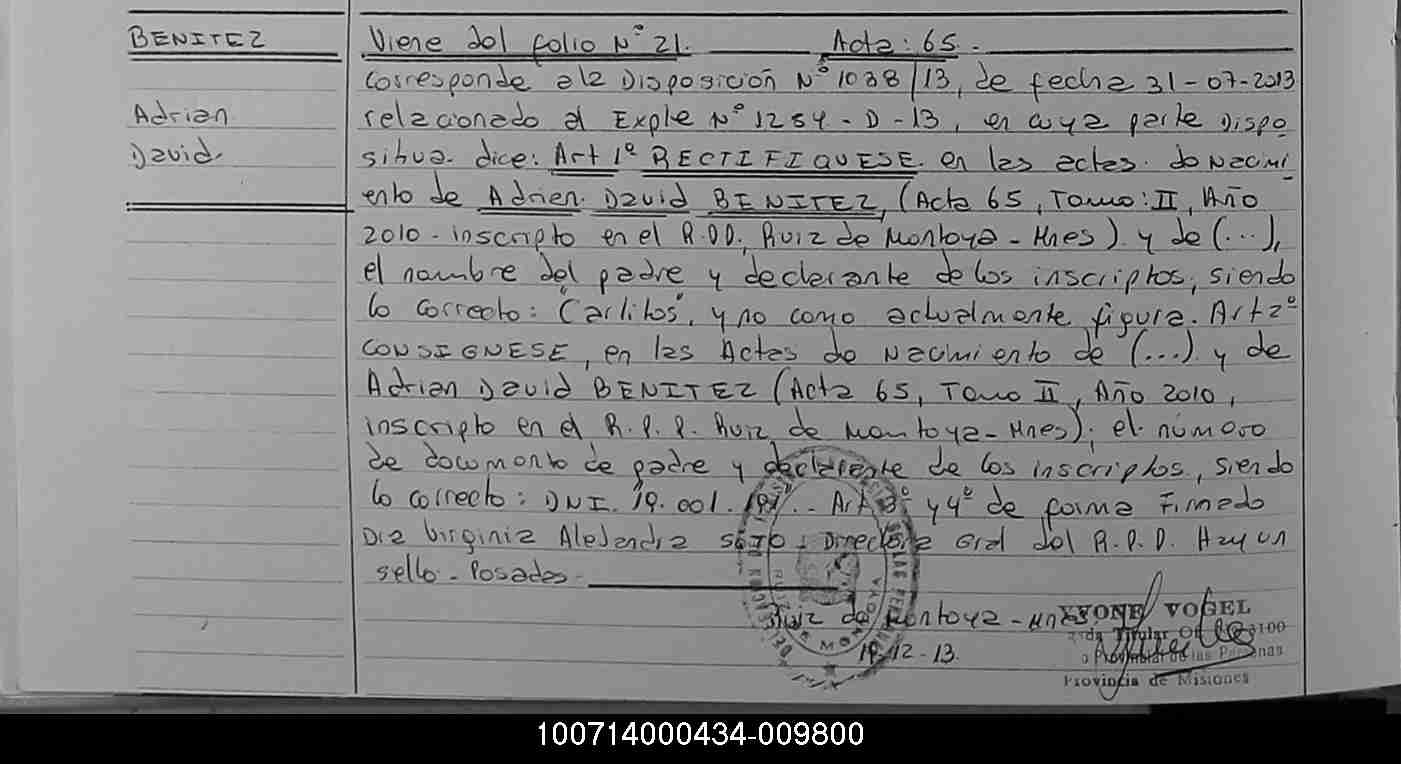 BENITEZ
Adrian
David.
Viene del folio N° 21. Acta: 65.-
Corresponde a la Disposición N° 1038/13, de fecha 31-07-2013
relacionado al Expte N° 1254-D-13, en cuya parte Dispo
sitiva dice: Art 1° RECTIFIQUESE en las actas de Nacimi
ento de Adrian David BENITEZ, (Acta 65, Tomo: II, Año
2010- inscripto en el R.PP. Ruiz de Montoya-Mnes) y de (...),
el nombre del padre y declarante de los inscriptos, siendo
lo correcto: "Carlitos", y no como actualmente figura. Art 2°
CONSIGNESE, en las Actas de Nacimiento de (...) y de
Adrian David BENITEZ (Acta 65, Tomo II, Año 2010,
inscripto en el R.P.P. Ruiz de Montoya-Mnes); el número
de documento de padre y declarante de los inscriptos, siendo
lo correcto: DNI. 19.001. Art 3° y 4° de forma Firmado
Dra Virginia Alejandra Directora Gral del R.P.P. Hay un
sello- Posadas-
Ruiz de Montoya-Mnes.
12-13.
YVONE VOGEL
Titular
Provincial de las Personas
Provincia de Misiones
100714000434-009800